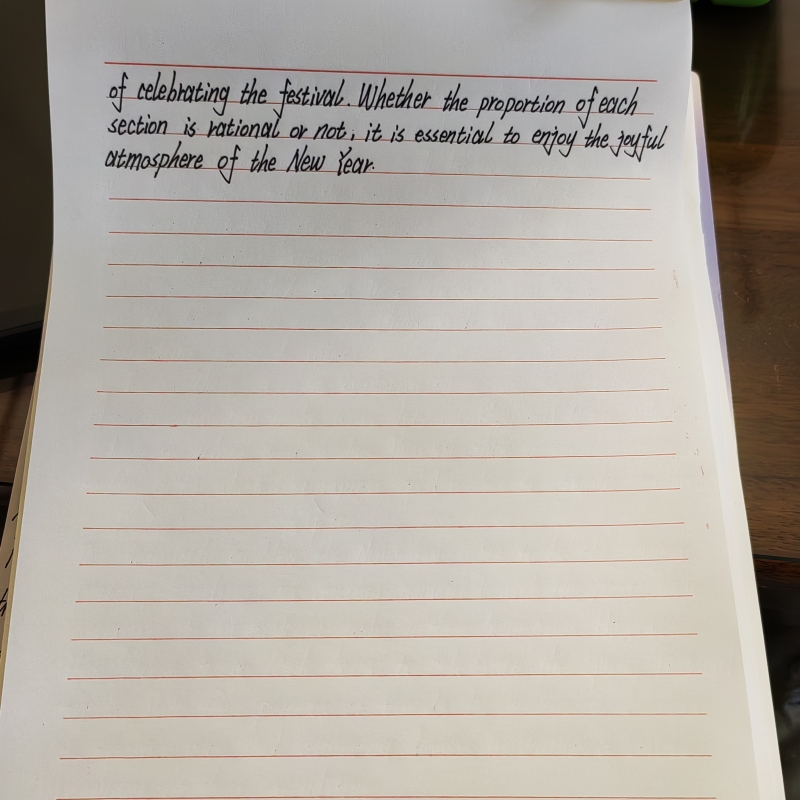 of celebrating the festival. Whether the proportion of each
section is rational or not, it is essential to enjoy the joyful
atmosphere of the New Year.